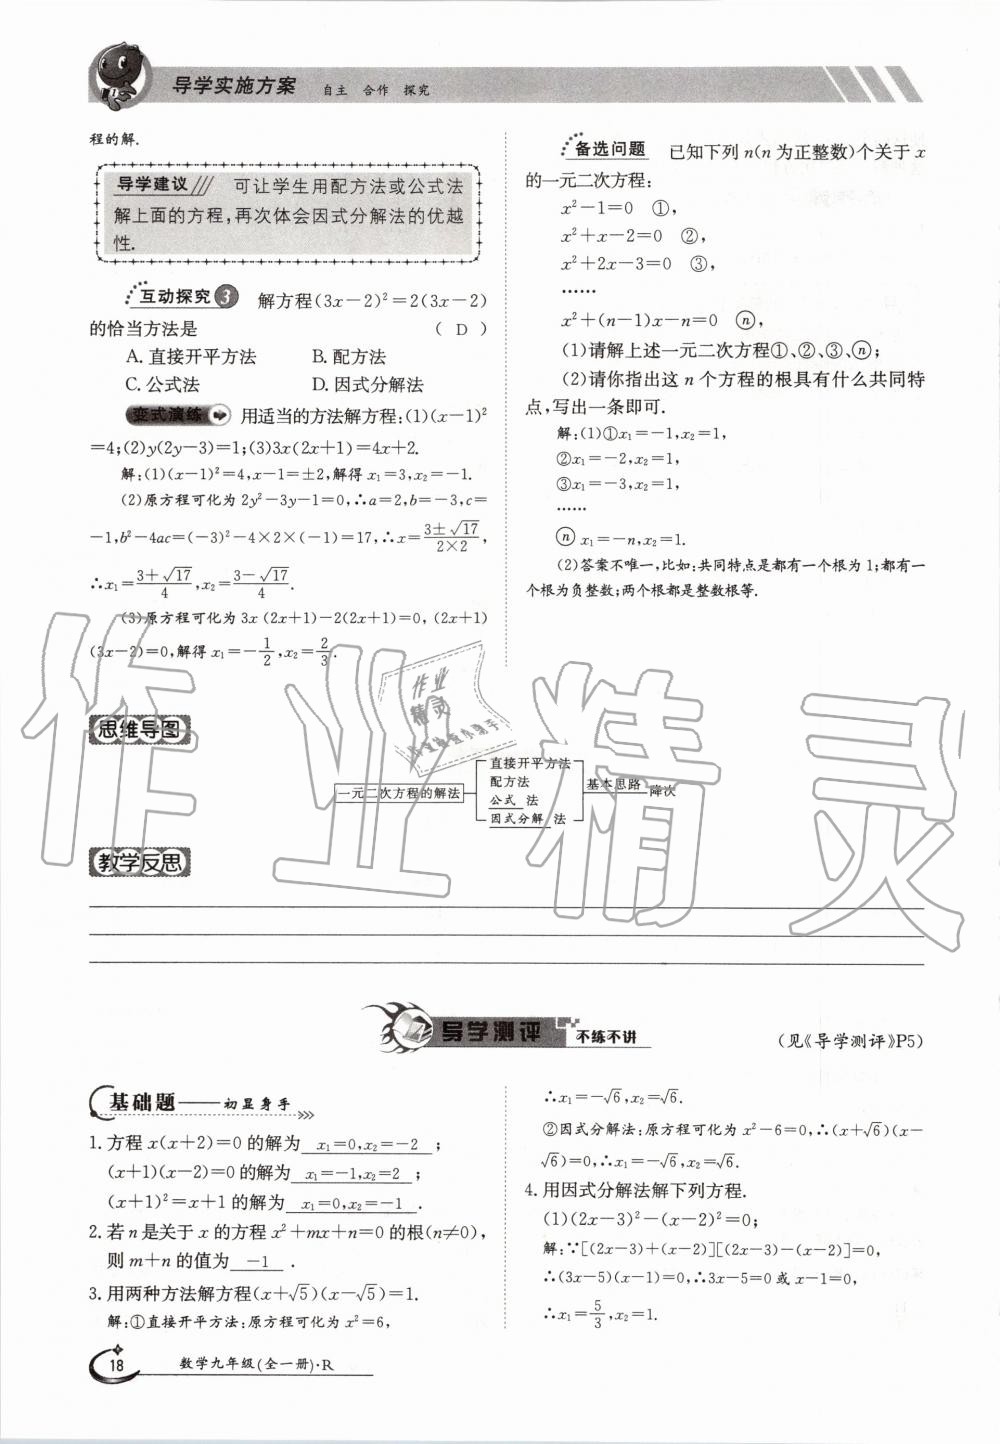 导学实施方案 自主 合作 探究
程的解.
导学建议 可让学生用配方法或公式法
解上面的方程,再次体会因式分解法的优越
性.
互动探究3 解方程(3x-2)²=2(3x-2)
的恰当方法是 ( D )
A.直接开平方法 B.配方法
C.公式法 D.因式分解法
变式演练 用适当的方法解方程:(1)(x-1)²
=4;(2)y(2y-3)=1;(3)3x(2x+1)=4x+2.
解:(1)(x-1)²=4,x-1=±2,解得x₁=3,x₂=-1.
(2)原方程可化为2y²-3y-1=0,∴a=2,b=-3,c=
-1,b²-4ac=(-3)²-4×2×(-1)=17,∴x=(3±√17)/(2×2),
∴x₁=(3+√17)/4,x₂=(3-√17)/4.
(3)原方程可化为3x(2x+1)-2(2x+1)=0,(2x+1)
(3x-2)=0,解得x₁=-1/2,x₂=2/3.
备选问题 已知下列n(n为正整数)个关于x
的一元二次方程:
x²-1=0 ①,
x²+x-2=0 ②,
x²+2x-3=0 ③,
……
x²+(n-1)x-n=0 ⓝ,
(1)请解上述一元二次方程①、②、③、ⓝ;
(2)请你指出这n个方程的根具有什么共同特
点,写出一条即可.
解:(1)①x₁=-1,x₂=1,
②x₁=-2,x₂=1,
③x₁=-3,x₂=1,
……
ⓝx₁=-n,x₂=1.
(2)答案不唯一,比如:共同特点是都有一个根为1;都有一
个根为负整数;两个根都是整数根等.
思维导图
一元二次方程的解法
直接开平方法
配方法
公式 法
因式分解 法
基本思路 降次
教学反思
作业精灵
作业
精灵
导学测评 不练不讲
(见《导学测评》P5)
基础题——初显身手
1.方程x(x+2)=0的解为 x₁=0,x₂=-2 ;
(x+1)(x-2)=0的解为 x₁=-1,x₂=2 ;
(x+1)²=x+1的解为 x₁=0,x₂=-1 .
2.若n是关于x的方程x²+mx+n=0的根(n≠0),
则m+n的值为 -1 .
3.用两种方法解方程(x+√5)(x-√5)=1.
解:①直接开平方法:原方程可化为x²=6,
∴x₁=-√6,x₂=√6.
②因式分解法:原方程可化为x²-6=0,∴(x+√6)(x-
√6)=0,∴x₁=-√6,x₂=√6.
4.用因式分解法解下列方程.
(1)(2x-3)²-(x-2)²=0;
解:∵[(2x-3)+(x-2)][(2x-3)-(x-2)]=0,
∴(3x-5)(x-1)=0,∴3x-5=0或x-1=0,
∴x₁=5/3,x₂=1.
18 数学九年级(全一册)·R